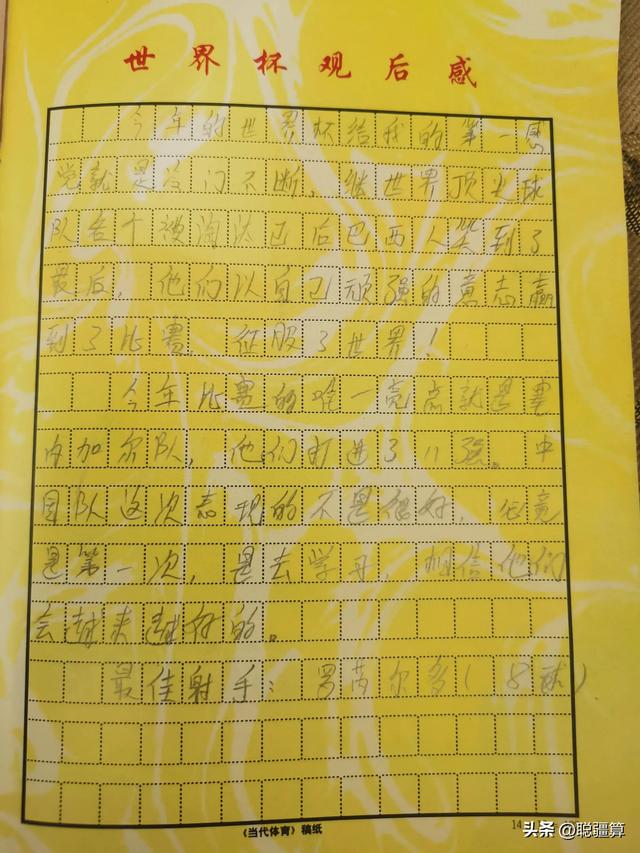 世界杯观后感
今年的世界杯给我的第一感
觉就是冷门不断,继世界顶尖球
队各个被淘汰已后巴西人笑到了
最后,他们以自己顽强的意志赢
到了比赛,征服了世界!
今年比赛的唯一亮点就是塞
内加尔队,他们打进了11强。中
国队这次表现的不是很好,必竟
是第一次,是去学习,相信他们
会越来越好的。
最佳射手:罗纳尔多(8球)
《当代体育》稿纸
14
头条 @聪疆算